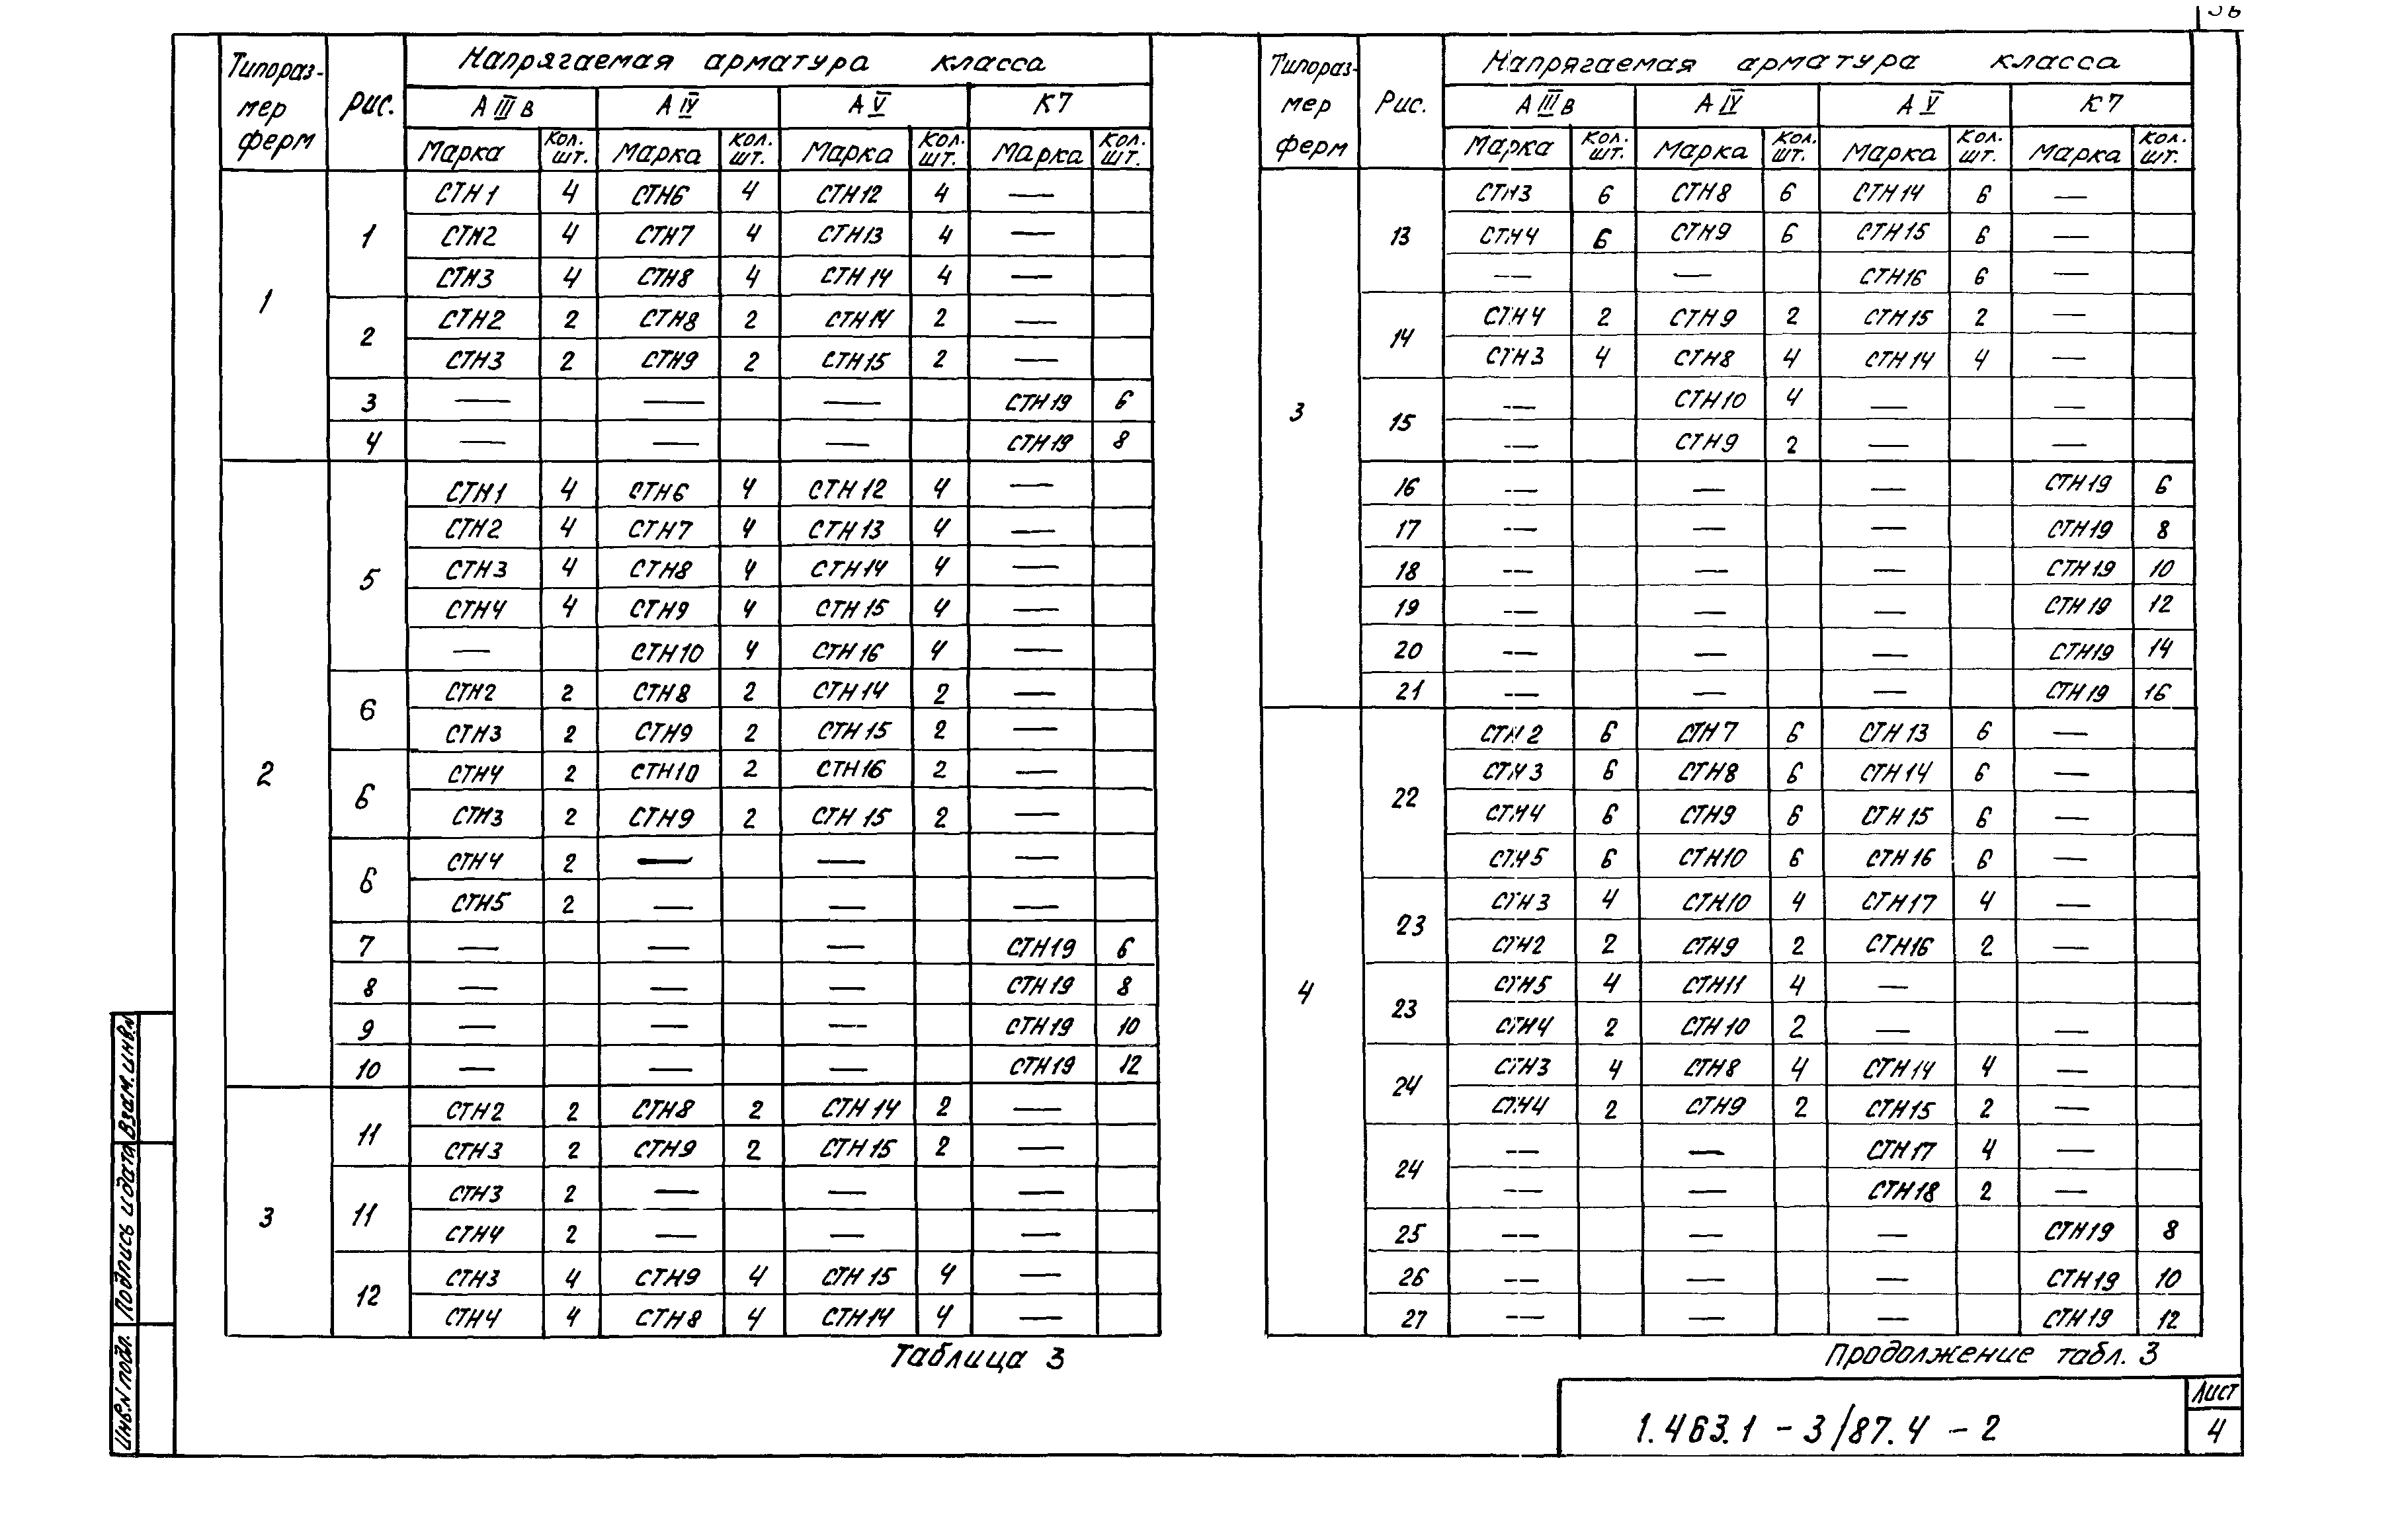 Типораз-
мер
ферм
Рис.
Напрягаемая арматура класса
А III в | А IV | А V | К7
Марка | Кол. шт. | Марка | Кол. шт. | Марка | Кол. шт. | Марка | Кол. шт.
1 | 1 | СТН1 | 4 | СТН6 | 4 | СТН12 | 4 | —
СТН2 | 4 | СТН7 | 4 | СТН13 | 4 | —
СТН3 | 4 | СТН8 | 4 | СТН14 | 4 | —
2 | СТН2 | 2 | СТН8 | 2 | СТН14 | 2 | —
СТН3 | 2 | СТН9 | 2 | СТН15 | 2 | —
3 | — | — | — | СТН19 | 6
4 | — | — | — | СТН19 | 8
2 | 5 | СТН1 | 4 | СТН6 | 4 | СТН12 | 4 | —
СТН2 | 4 | СТН7 | 4 | СТН13 | 4 | —
СТН3 | 4 | СТН8 | 4 | СТН14 | 4 | —
СТН4 | 4 | СТН9 | 4 | СТН15 | 4 | —
— | СТН10 | 4 | СТН16 | 4 | —
6 | СТН2 | 2 | СТН8 | 2 | СТН14 | 2 | —
СТН3 | 2 | СТН9 | 2 | СТН15 | 2 | —
6 | СТН4 | 2 | СТН10 | 2 | СТН16 | 2 | —
СТН3 | 2 | СТН9 | 2 | СТН15 | 2 | —
6 | СТН4 | 2 | — | — | —
СТН5 | 2 | — | — | —
7 | — | — | — | СТН19 | 6
8 | — | — | — | СТН19 | 8
9 | — | — | — | СТН19 | 10
10 | — | — | — | СТН19 | 12
3 | 11 | СТН2 | 2 | СТН8 | 2 | СТН14 | 2 | —
СТН3 | 2 | СТН9 | 2 | СТН15 | 2 | —
11 | СТН3 | 2 | — | — | —
СТН4 | 2 | — | — | —
12 | СТН3 | 4 | СТН9 | 4 | СТН15 | 4 | —
СТН4 | 4 | СТН8 | 4 | СТН14 | 4 | —
Таблица 3
Типораз-
мер
ферм
Рис.
Напрягаемая арматура класса
А III в | А IV | А V | К7
Марка | Кол. шт. | Марка | Кол. шт. | Марка | Кол. шт. | Марка | Кол. шт.
3 | 13 | СТН3 | 6 | СТН8 | 6 | СТН14 | 6 | —
СТН4 | 6 | СТН9 | 6 | СТН15 | 6 | —
— | — | СТН16 | 6 | —
14 | СТН4 | 2 | СТН9 | 2 | СТН15 | 2 | —
СТН3 | 4 | СТН8 | 4 | СТН14 | 4 | —
15 | — | СТН10 | 4 | — | —
— | СТН9 | 2 | — | —
16 | — | — | — | СТН19 | 6
17 | — | — | — | СТН19 | 8
18 | — | — | — | СТН19 | 10
19 | — | — | — | СТН19 | 12
20 | — | — | — | СТН19 | 14
21 | — | — | — | СТН19 | 16
4 | 22 | СТН2 | 6 | СТН7 | 6 | СТН13 | 6 | —
СТН3 | 6 | СТН8 | 6 | СТН14 | 6 | —
СТН4 | 6 | СТН9 | 6 | СТН15 | 6 | —
СТН5 | 6 | СТН10 | 6 | СТН16 | 6 | —
23 | СТН3 | 4 | СТН10 | 4 | СТН17 | 4 | —
СТН2 | 2 | СТН9 | 2 | СТН16 | 2 | —
23 | СТН5 | 4 | СТН11 | 4 | —
СТН4 | 2 | СТН10 | 2 | — | —
24 | СТН3 | 4 | СТН8 | 4 | СТН14 | 4 | —
СТН4 | 2 | СТН9 | 2 | СТН15 | 2 | —
24 | — | — | СТН17 | 4 | —
— | — | СТН18 | 2 | —
25 | — | — | — | СТН19 | 8
26 | — | — | — | СТН19 | 10
27 | — | — | — | СТН19 | 12
Продолжение табл. 3
Взам. инв. N
Подпись и дата
Инв. N подл.
1.463.1 - 3/87.4 - 2
Лист
4